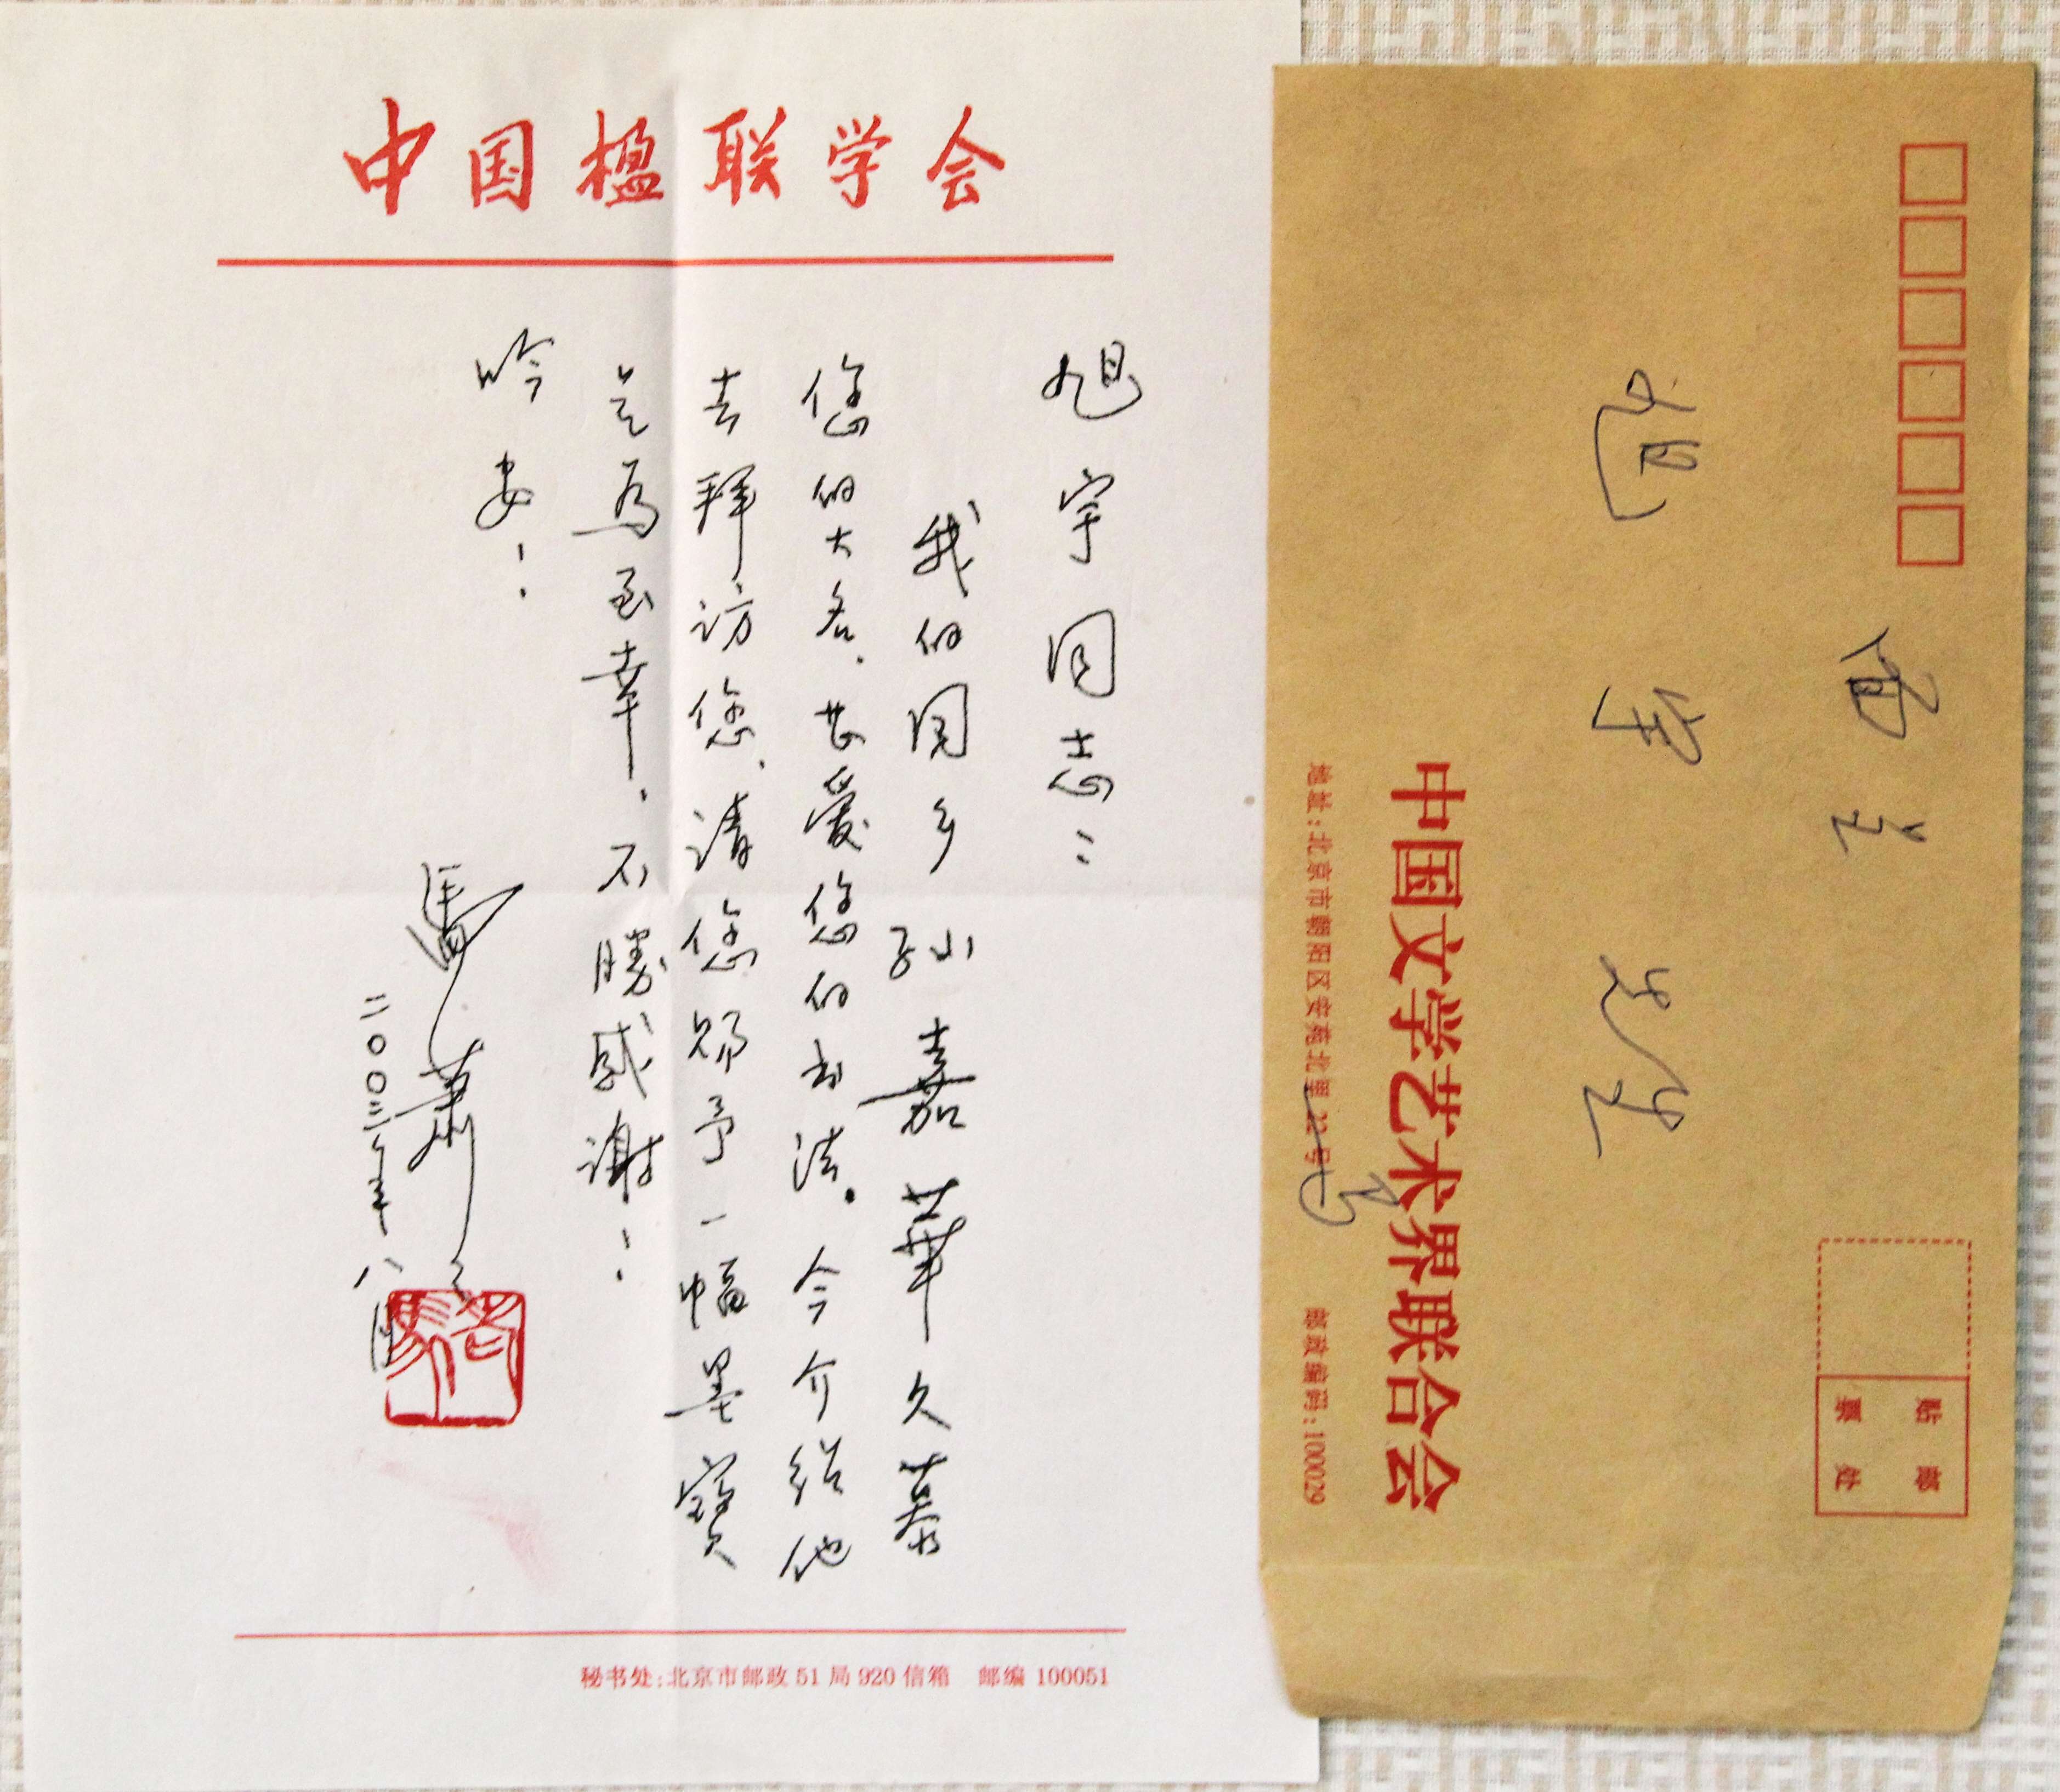 中国楹联学会
旭宇同志：
我的同乡孙嘉华久慕
您的大名，甚爱您的书法。今介绍他
去拜访您，请您赐予一幅墨宝
是为至幸，不胜感谢！
吟安！
马萧萧
二〇〇三年八月
秘书处:北京市邮政51局920信箱 邮编100051
面呈
旭宇先生
马
中国文学艺术界联合会
地址:北京市朝阳区安苑北里22号 邮政编码:100029
贴邮
票处